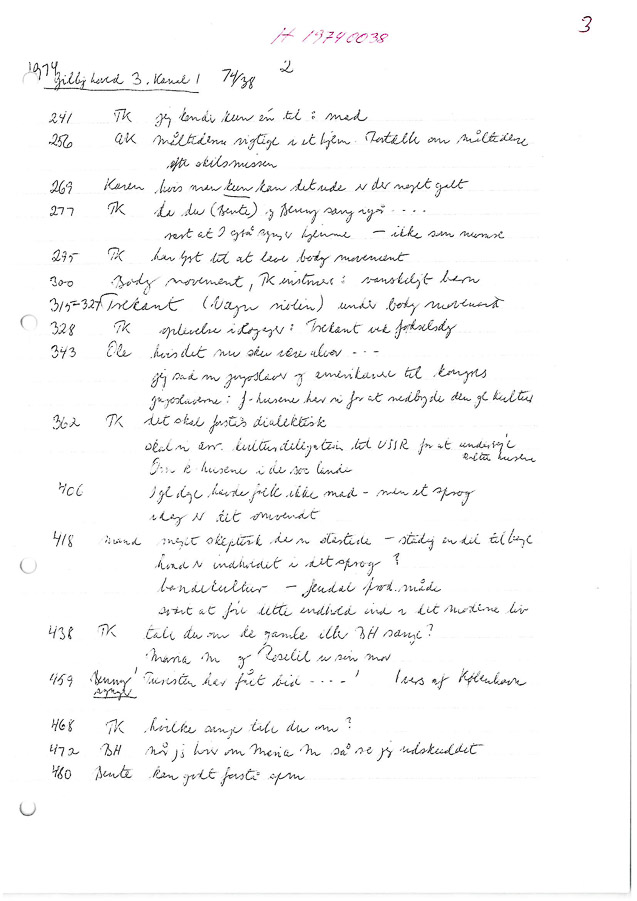 3
H 19740038
1974 2
Gilbjhoved 3. Kanal 1 74/38
241 TK jeg kender kun én til : mad
256 AK måltiderne vigtige i et hjem. Fortælle om måltiderne
efter skilsmissen
269 Karen hvis man kun kan det ude er der noget galt
277 TK da du (Bente) og Benny sang også ....
rart at I også synger hjemme – ikke som numre
295 TK har lyst til at lave body movement
300 Body movement, TK instruer : vanskeligt barn
315-327 Trekant (Vagn violin) under body movement
328 TK oplevelse i : Trekant ved fødselsdag
343 Ole hvis det nu sku være alvor ...
jeg sad m jugoslaver og amerikanere til kongres
jugoslaverne : f-husene har vi for at nedbryde den gl kultur
362 TK det skal forstås dialektisk
skal vi arr. kulturdelegation til USSR for at undersøge
kultur husene
Om k husene i de soc lande
406 I gl dage havde folk ikke mad – men et sprog
idag er det omvendt
418 mand meget skeptisk da vi startede – stadig en del tilbage
hvad er indholdet i det sprog ?
bondekultur – feudal prod.måde
svært at få dette indhold ind i det moderne liv
438 TK taler du om de gamle eller BH sange ?
Maria M og Roselil u sin mor
459 Benny synger 'Turisten har fået bid ....' 1 vers af København
468 TK hvilke sange taler du om ?
472 BH når jeg hør om Maria M så ser jeg udskuddet
480 Bente kan godt forstå